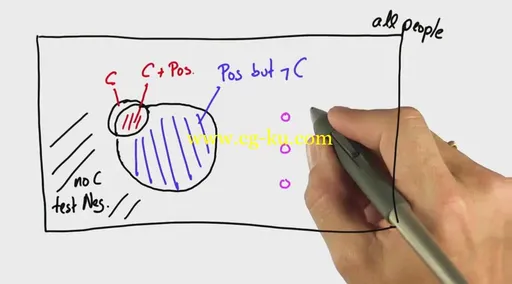 all people
C
C + Pos.
Pos but ¬ C
www.cg-ku.com
no C
test Neg.